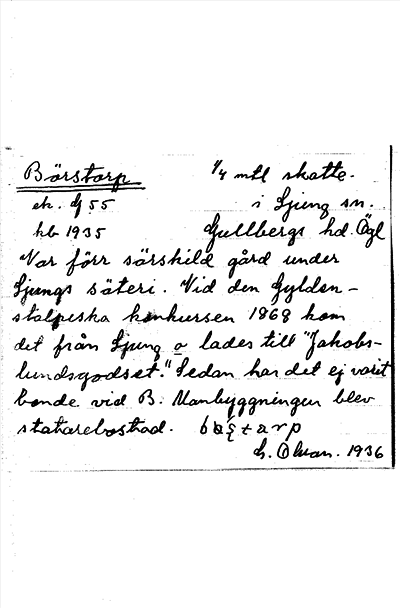 Börstorp 1/4 mtl skatte.
ek. Lj 55 i Ljung sn.
hb 1935 Gullbergs hd. Ögl
Var förr särskild gård under
Ljungs säteri. Vid den Gylden-
stolpeska konkursen 1868 kom
det från Ljung o lades till "Jakobs-
lundsgodset." Sedan har det ej varit
bonde vid B. Manbyggningen blev
statarebostad.
1936